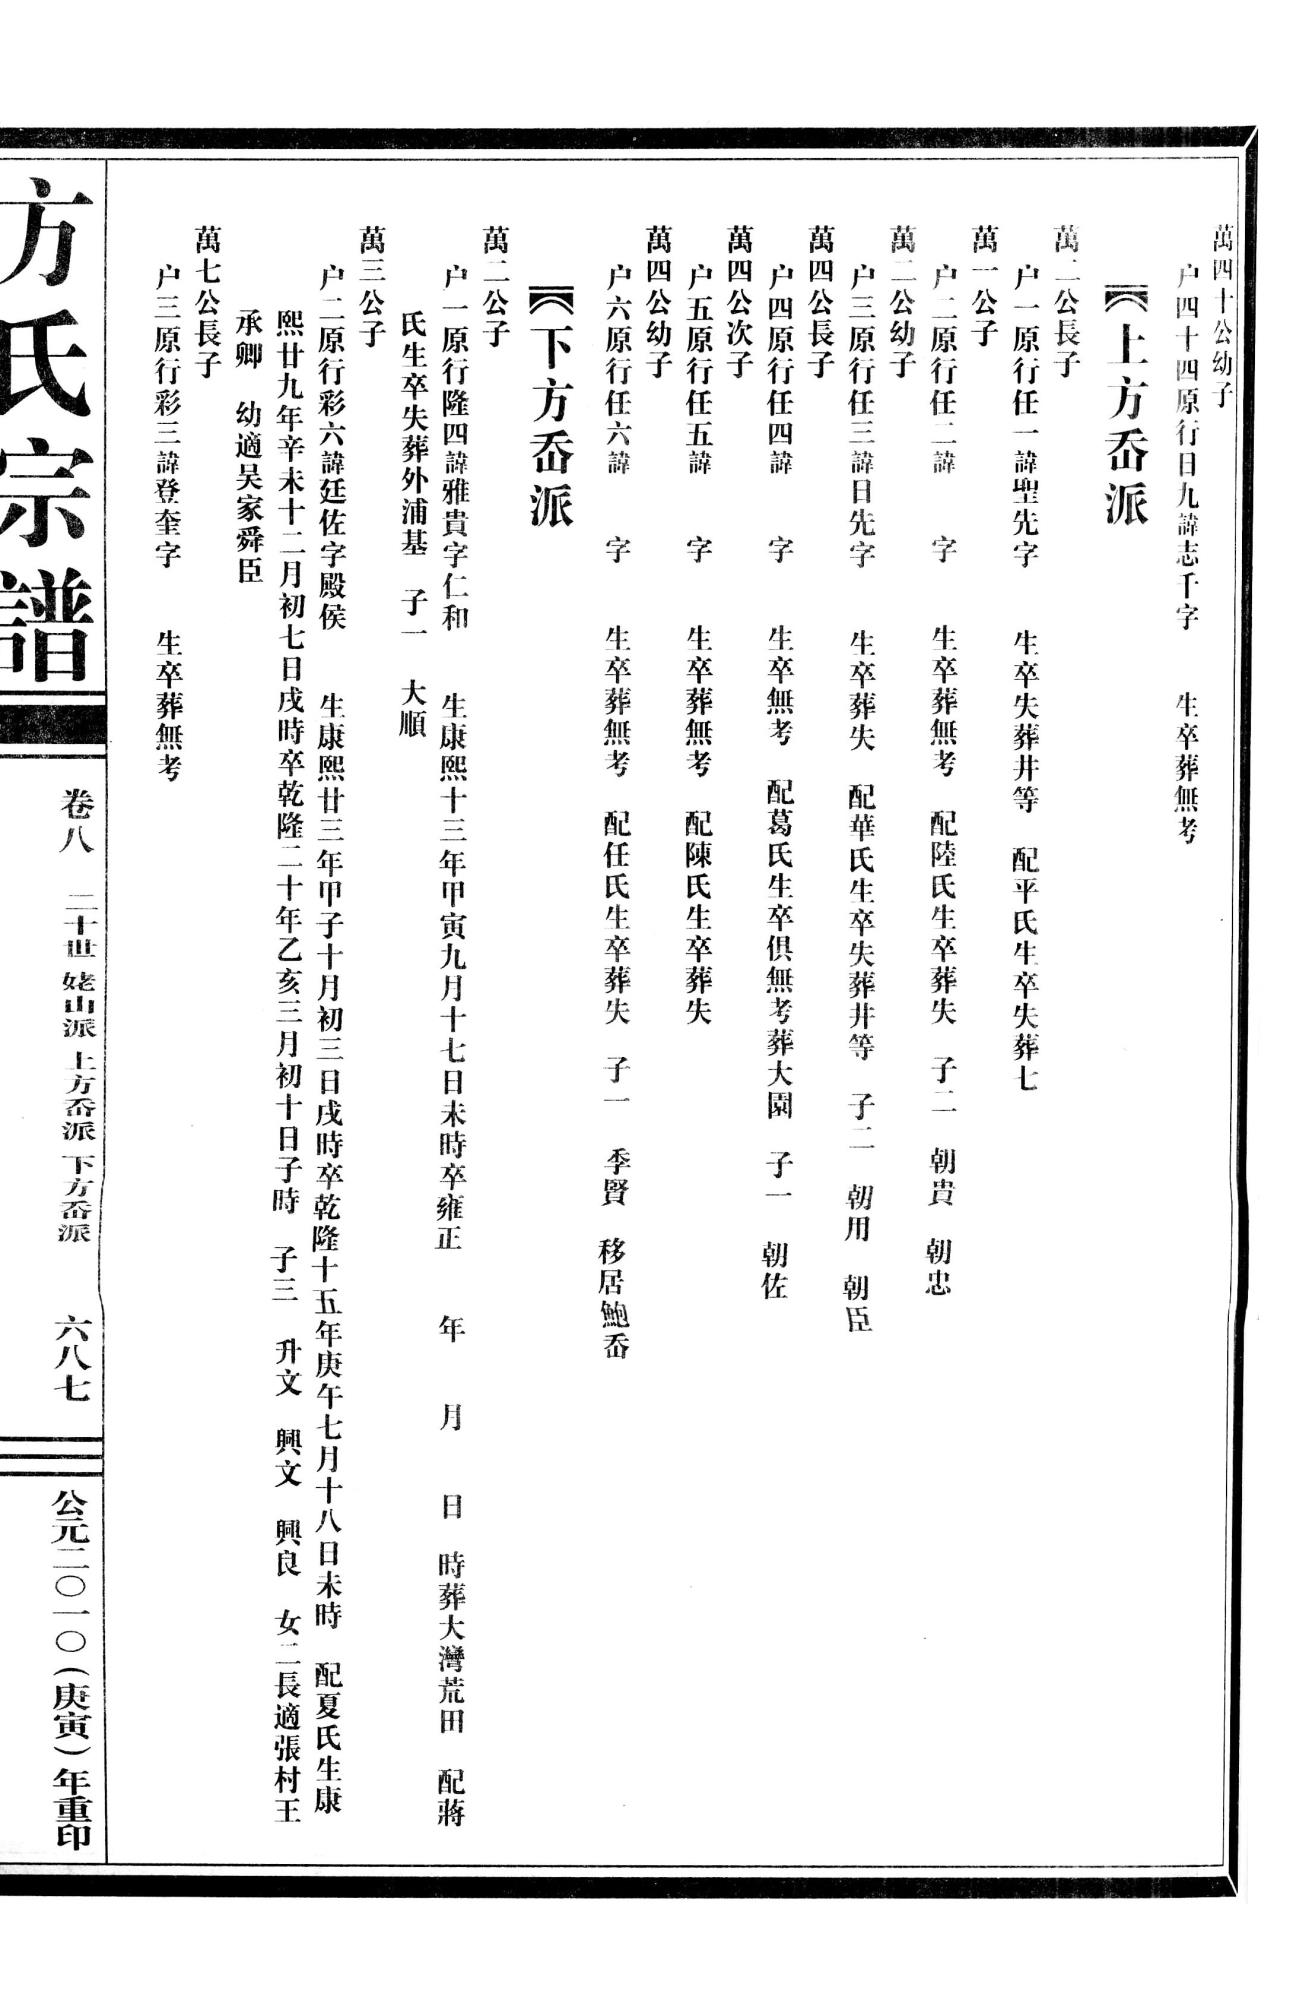 萬四十公幼子
户四十四原行日九諱志千字　生卒葬無考
上方岙派
萬二公長子
户一原行任一諱聖先字　生卒失葬井等　配平氏生卒失葬七
萬一公子
户二原行任二諱　字　生卒葬無考　配陸氏生卒葬失　子二　朝貴　朝忠
萬二公幼子
户三原行任三諱日先字　生卒葬失　配華氏生卒失葬井等　子二　朝用　朝臣
萬四公長子
户四原行任四諱　字　生卒無考　配葛氏生卒俱無考葬大園　子一　朝佐
萬四公次子
户五原行任五諱　字　生卒葬無考　配陳氏生卒葬失
萬四公幼子
户六原行任六諱　字　生卒葬無考　配任氏生卒葬失　子一　季賢　移居鮑岙
下方岙派
萬二公子
户一原行隆四諱雅貴字仁和　生康熙十三年甲寅九月十七日未時卒雍正　年　月　日　時葬大灣荒田　配蔣
氏生卒失葬外浦基　子一　大順
萬三公子
户二原行彩六諱廷佐字殿侯　生康熙廿三年甲子十月初三日戌時卒乾隆十五年庚午七月十八日未時　配夏氏生康
熙廿九年辛未十二月初七日戌時卒乾隆二十年乙亥三月初十日子時　子三　升文　興文　興良　女二長適張村王
承卿　幼適吴家舜臣
萬七公長子
户三原行彩三諱登奎字　生卒葬無考
方氏宗譜
卷八　二十世　姥山派　上方岙派　下方岙派　六八七
公元二〇一〇（庚寅）年重印